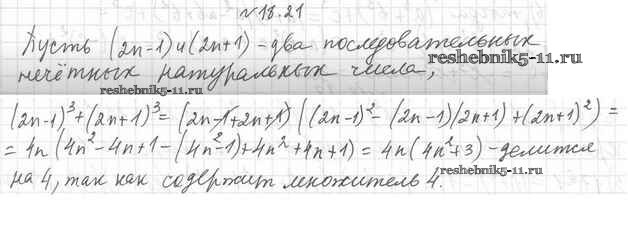 №18.21
Пусть (2n-1) и (2n+1) - два последовательных
reshebnik5-11.ru
нечётных натуральных числа,
reshebnik5-11.ru
(2n-1)³+(2n+1)³= (2n-1+2n+1) ((2n-1)²- (2n-1)(2n+1) +(2n+1)²) =
= 4n (4n²-4n+1-(4n²-1)+4n²+4n+1) = 4n(4n²+3) - делится
reshebnik5-11.ru
на 4, так как содержит множитель 4.